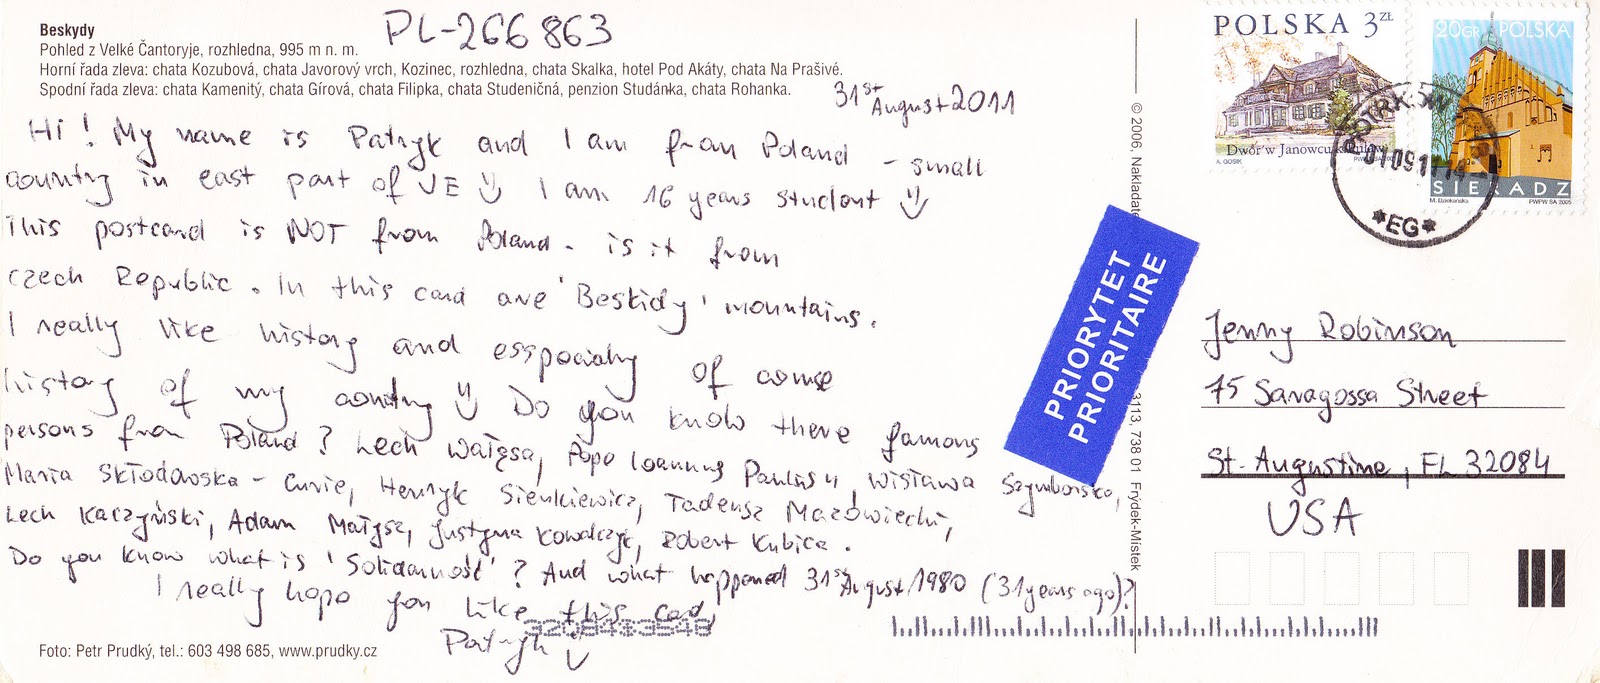 Beskydy
PL-266863
Pohled z Velké Čantoryje, rozhledna, 995 m n. m.
Horní řada zleva: chata Kozubová, chata Javorový vrch, Kozinec, rozhledna, chata Skalka, hotel Pod Akáty, chata Na Prašivé.
Spodní řada zleva: chata Kamenitý, chata Gírová, chata Filipka, chata Studeničná, penzion Studánka, chata Rohanka.
31st August 2011
Hi! My name is Patryk and I am from Poland - small
country in east part of UE I am 16 years student
This postcard is NOT from Poland - is it from
Czech Republic. In this card are 'Beskidy' mountains.
I really like history and esspecialy of course
history of my country Do you know there famous
persons from Poland? Lech Wałęsa, Pope Ioannus Paulus II, Wisława Szymborska,
Maria Skłodowska-Curie, Henryk Sienkiewicz, Tadeusz Mazowiecki,
Lech Kaczyński, Adam Małysz, Justyna Kowalczyk, Robert Kubica.
Do you know what is 'Solidarność'? And what happened 31st August 1980 (31 years ago)?
I really hope you like this card,
Patryk
Foto: Petr Prudký, tel.: 603 498 685, www.prudky.cz
© 2006, Nakladate
3113, 738 01 Frýdek-Místek
PRIORYTET
PRIORITAIRE
POLSKA 3 ZŁ
Dwór w Janowcu k.
A. GOSIK
PWPW SA
20GR POLSKA
SIERADZ
M. Dziekańska PWPW SA 2005
*EG*
Jenny Robinson
75 Saragossa Street
St. Augustine, FL 32084
USA